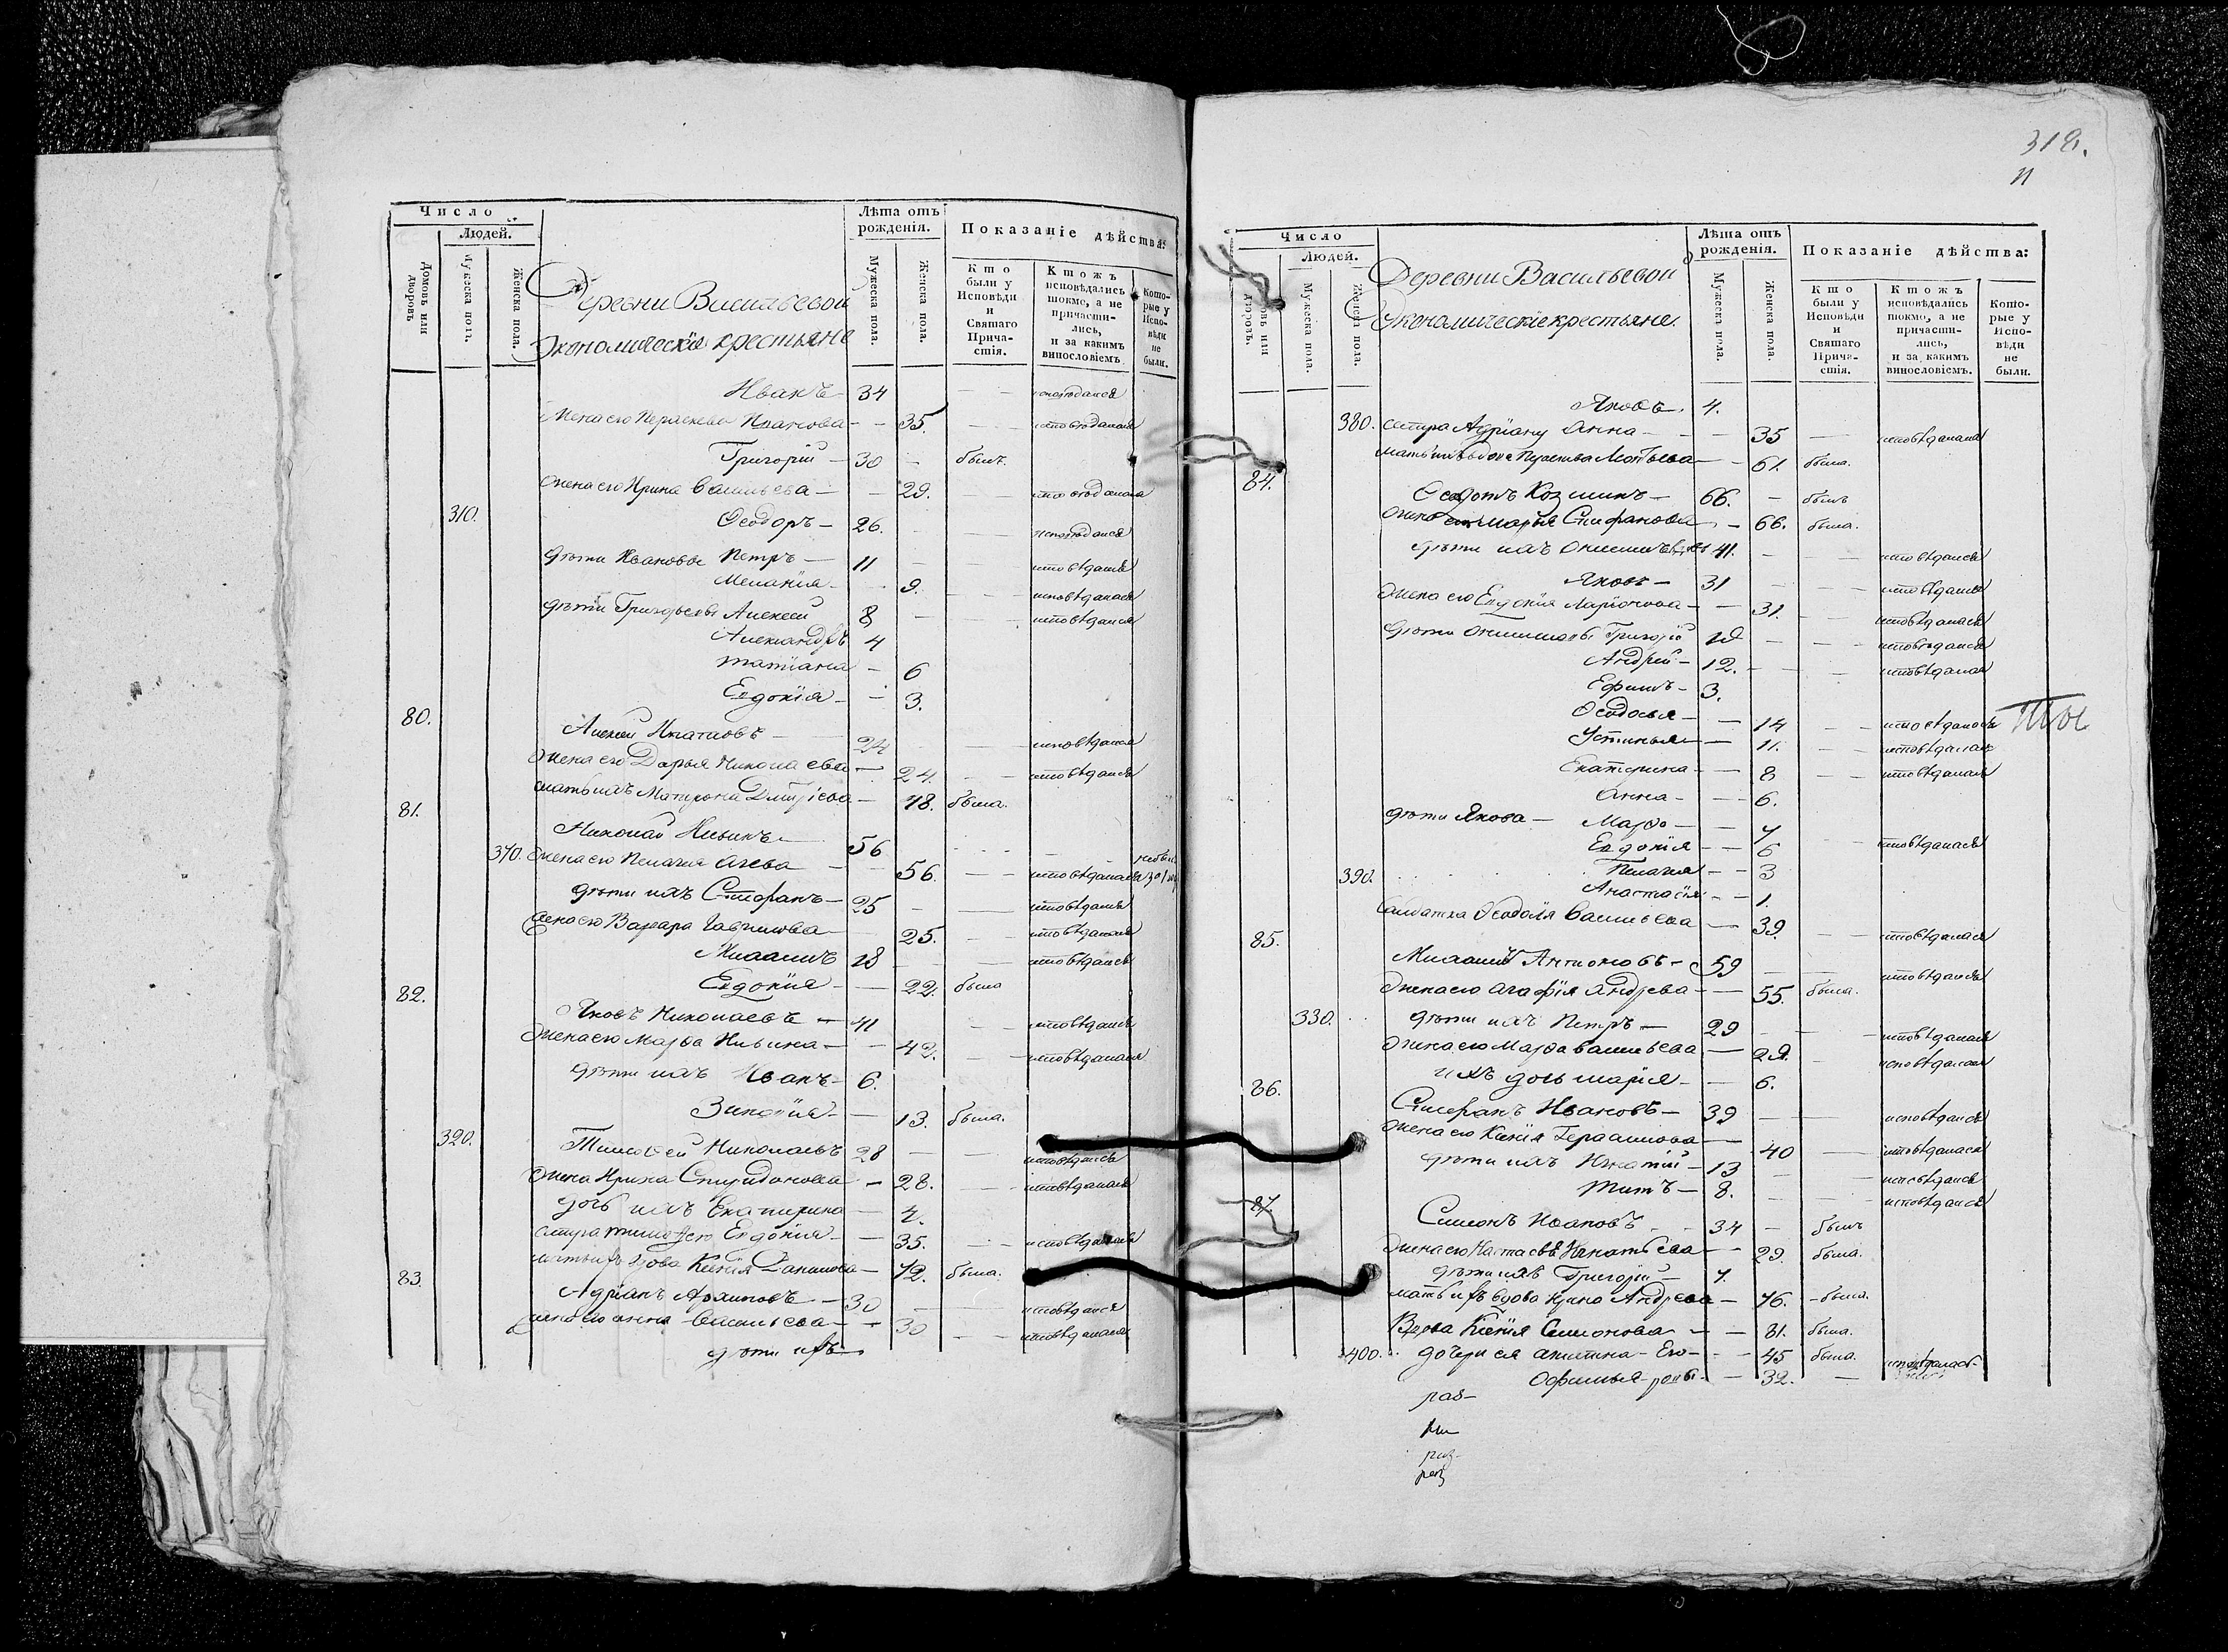 Число
Людей.
Домовъ или дворовъ
Мужеска полъ.
Женска пола.
Деревни Васильевои
Экономическïя крестьяне
Лѣта отъ рожденія.
Мужеска пола.
Женска пола.
Показаніе дѣйства:
Кто были у Исповѣди и Святаго Прича-стія.
Ктожъ исповѣдались токмо, а не причасти-лись, и за какимъ винословіемъ
Кото-рые у Испо-вѣди не были.
Иванъ 34 исповѣдался
Жена его Параскева Иванова 35. исповѣдалася
Григорïй 30 былъ.
жена его Ирина Васильева 29. исповѣдалася
310. Ѳеодоръ 26. исповѣдался
дѣти Ивановы Петръ 11 исповѣдался
Меланïя 9. исповѣдалася
дѣти Григорьевы Алексей 8 исповѣдался
Александръ 4
татïана 6
Евдокïя 3.
80.
Алексей Игнатовъ 24 исповѣдался
жена его Дарья Николаева 24. исповѣдалася
мать ихъ Матрона Дмитрïева 48. была.
81.
Николай Ильинъ 56
370. жена его Пелагея 56. исповѣдалася
дѣти ихъ Стефанъ 25 исповѣдался
жена его Варвара Гаврилова 25. исповѣдалася
Михаилъ 18 исповѣдался
Евдокïя 22. была
82.
Яковъ Николаевъ 41 исповѣдался
жена его Марѳа Ильина 42. исповѣдалася
дѣти ихъ Иванъ 6.
Зиновïя 13. была.
320. Тимоѳей Николаевъ 28 исповѣдался
жена Ирина Спиридонова 28. исповѣдалася
дочь ихъ Екатерина 4.
сестра Тимоѳею Евдокïя 35. исповѣдалася
мать ихъ вдова Ксенïя Данилова 72. была.
83.
Адрïанъ Архиповъ 30 исповѣдался
жена его анна Васильева 30 исповѣдалася
дѣти ихъ
318.
11
Число
Людей.
Мужеска пола.
Женска пола.
Деревни Васильевои
Экономическïе крестьяне.
Лѣта отъ рожденія.
Мужеска пола.
Женска пола.
Показаніе дѣйства:
Кто были у Исповѣди и Святаго Прича-стія.
Ктожъ исповѣдались токмо, а не причасти-лись, и за какимъ винословіемъ.
Кото-рые у Испо-вѣди не были.
Яковъ. 4.
380. сестра Адрïану Анна 35 исповѣдалася
мать ихъ вдова Параскева 61. была.
84.
Ѳеодотъ Козминъ 66. былъ
жена его Марья Стефанова 66. была.
дѣти ихъ 41. исповѣдался
Яковъ 31 исповѣдался
жена его Евдокïя Ларïонова 31. исповѣдалася
дѣти Григорïй 18 исповѣдался
Андрей 12. исповѣдался
Ефимъ 3.
Ѳеодосья 14 исповѣдалась
Устинья 11. исповѣдалась
Екатерина 8 исповѣдалася
Анна 6.
дѣти Якова Марѳа 7 исповѣдалася
Евдокïя 6
390. Пелагея 3
Анастасïя 1.
салдатка Ѳеодосïя Васильева 39. исповѣдалася
85.
Михаилъ Антоновъ 59 исповѣдался
жена его Агафïя Андрева 55. была.
330. дѣти ихъ Петръ 29 исповѣдался
жена его Марѳа Васильева 29. исповѣдалася
ихъ дочь марïя 6.
86.
Стефанъ Ивановъ 39 исповѣдался
жена его Ксенïя Герасимова 40 исповѣдалася
дѣти ихъ Игнатïй 13 исповѣдался
титъ 8. исповѣдался
87.
Симонъ Ивановъ 34 былъ
жена его Настасья Игнатьева 29. была.
дѣти ихъ Григорïй 7.
мать ихъ вдова Ирина Андреева 76. была.
Вдова Ксенïя Симонова 81. была.
400. дочери ея 45 была.
Офимья 32. исповѣдалась
раз